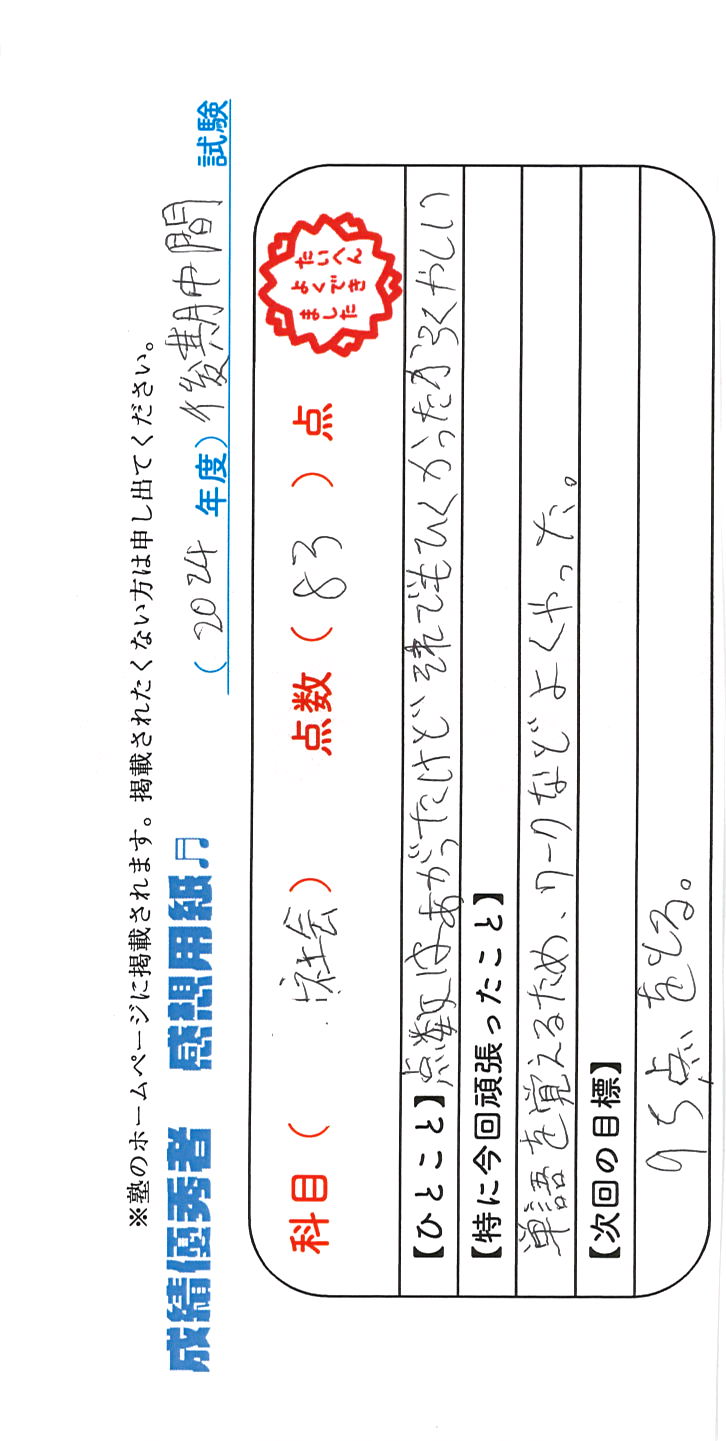 ※塾のホームページに掲載されます。掲載されたくない方は申し出てください。
成績優秀者 感想用紙♬
(2024年度)後期中間試験
科目(社会) 点数(83)点
たいへん
よくでき
ました
【ひとこと】点数はあがったけど、それでもひくかったからくやしい
【特に今回頑張ったこと】
単語を覚えるため、ワークなどよくやった。
【次回の目標】
95点をとる。